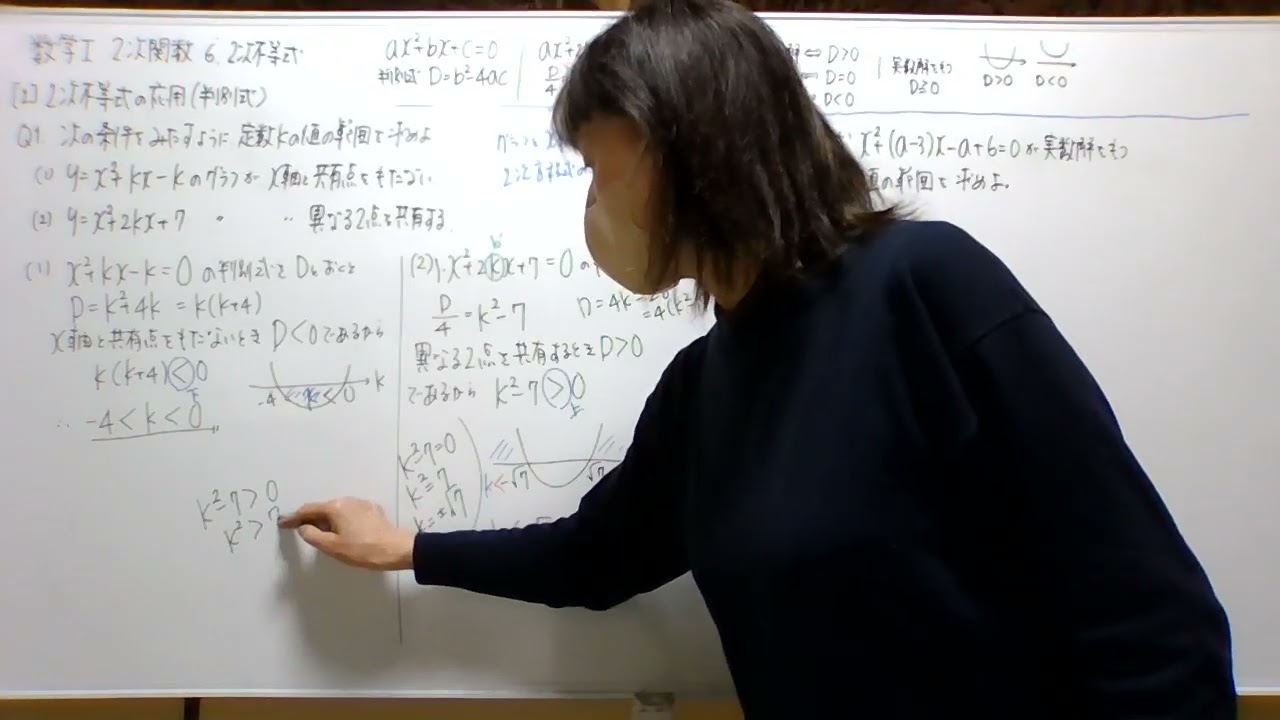 数学I 2次関数 6. 2次不等式
[2] 2次不等式の応用(判別式)
ax²+bx+c=0
判別式 D=b²-4ac
⇔ D>0
D=0
D<0
実数解をもつ
D≧0
D>0 D<0
Q1. 次の条件をみたすように定数kの値の範囲を求めよ
(1) y=x²+kx-kのグラフがx軸と共有点をもたない
(2) y=x²+2kx+7 〃 〃 異なる2点を共有する
x²+(a-3)x-a+6=0が実数解をもつ
の範囲を求めよ。
(1) x²+kx-k=0 の判別式をDとおくと
D=k²+4k =k(k+4)
x軸と共有点をもたないときD<0であるから
k(k+4)<0
-4 k 0 k
∴ -4<k<0
k²-7>0
k²>7
(2) 1·x²+2kx+7=0の
D/4=k²-7
異なる2点を共有するときD>0
であるから k²-7>0
k²-7=0
k²=7
k=±√7
k<-√7 √7